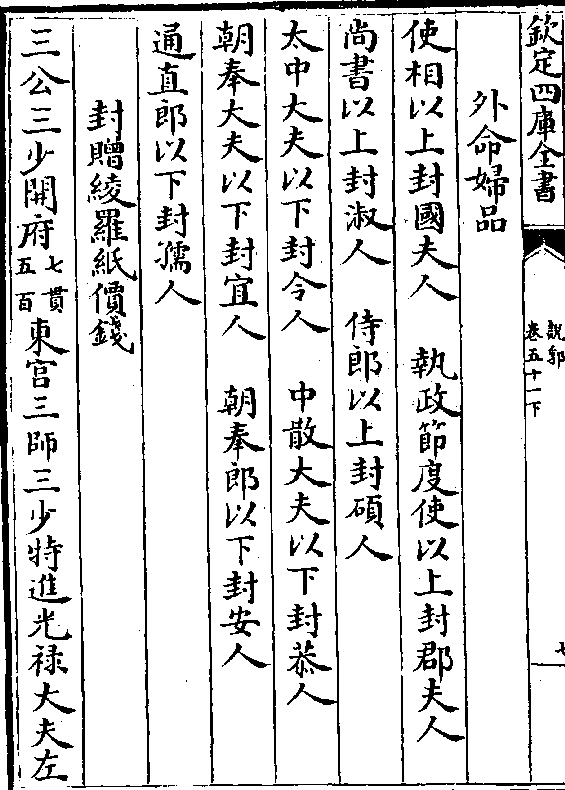 欽定四庫全書
說郛
卷五十一下
七
外命婦品
使相以上封國夫人　執政節度使以上封郡夫人
尚書以上封淑人　侍郎以上封碩人
太中大夫以下封令人　中散大夫以下封恭人
朝奉大夫以下封宜人　朝奉郎以下封安人
通直郎以下封孺人
封贈綾羅紙價錢
三公三少開府七貫五百東宮三師三少特進光禄大夫左